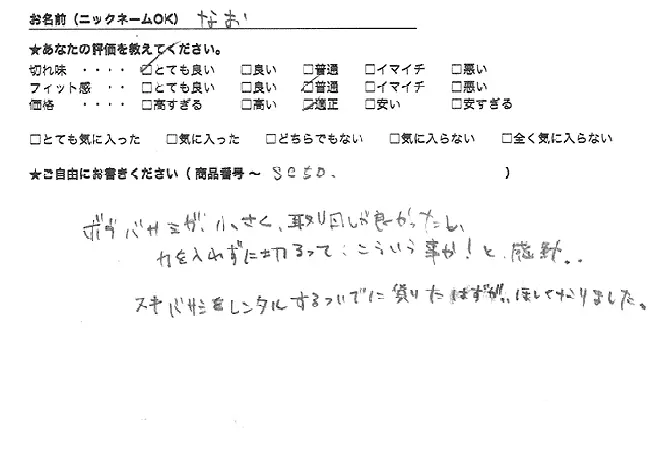 お名前（ニックネームOK） なお
★あなたの評価を教えてください。
切れ味 ・・・・ □とても良い □良い □普通 □イマイチ □悪い
フィット感 ・・ □とても良い □良い □普通 □イマイチ □悪い
価格 ・・・・ □高すぎる □高い □適正 □安い □安すぎる
□とても気に入った □気に入った □どちらでもない □気に入らない □全く気に入らない
★ご自由にお書きください（商品番号〜 ）
ハサミが、小さく、取り回しが良かったし、
力を入れずに切るって、こういう事か！と、感動、、
スキバサミをレンタルするついでに借りたはずが、ほしくなりました。